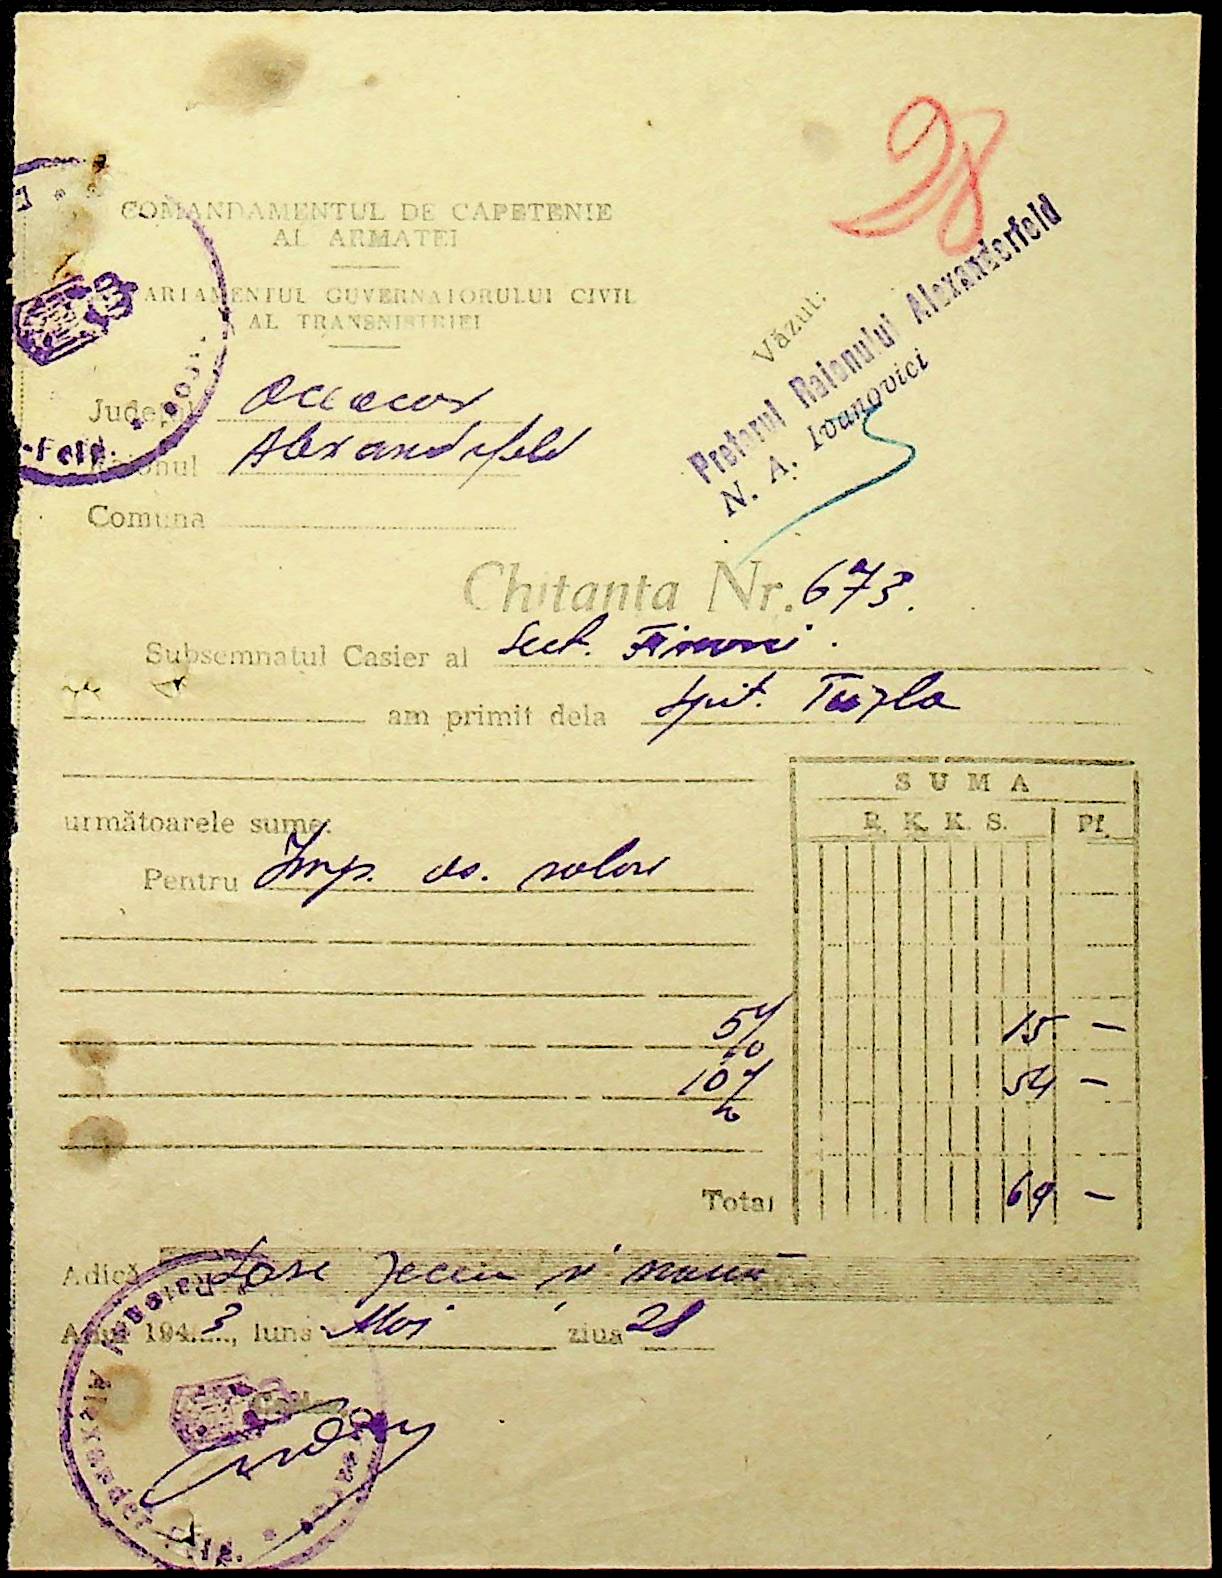 98
COMANDAMENTUL DE CAPETENIE
AL ARMATEI
ARTAMENTUL GUVERNATORULUI CIVIL
AL TRANSNISTRIEI
Văzut:
Pretorul Raionului Alexanderfeld
N. A. Ivanovici
Judeţul Oceacov
Raionul Alexanderfeld
Comuna
-Feld.
Chitanta Nr. 673.
Subsemnatul Casier al Sect. Financi.
am primit dela Spit. Tuzla
SUMA
R. K. K. S. Pf.
următoarele sume:
Pentru Imp. as. valori
5% 15 —
10% 54 —
Total 69 —
Adică Șase zeci și nouă —
Anul 1943, luna Mai ziua 28
Raionul Alexander Feld.